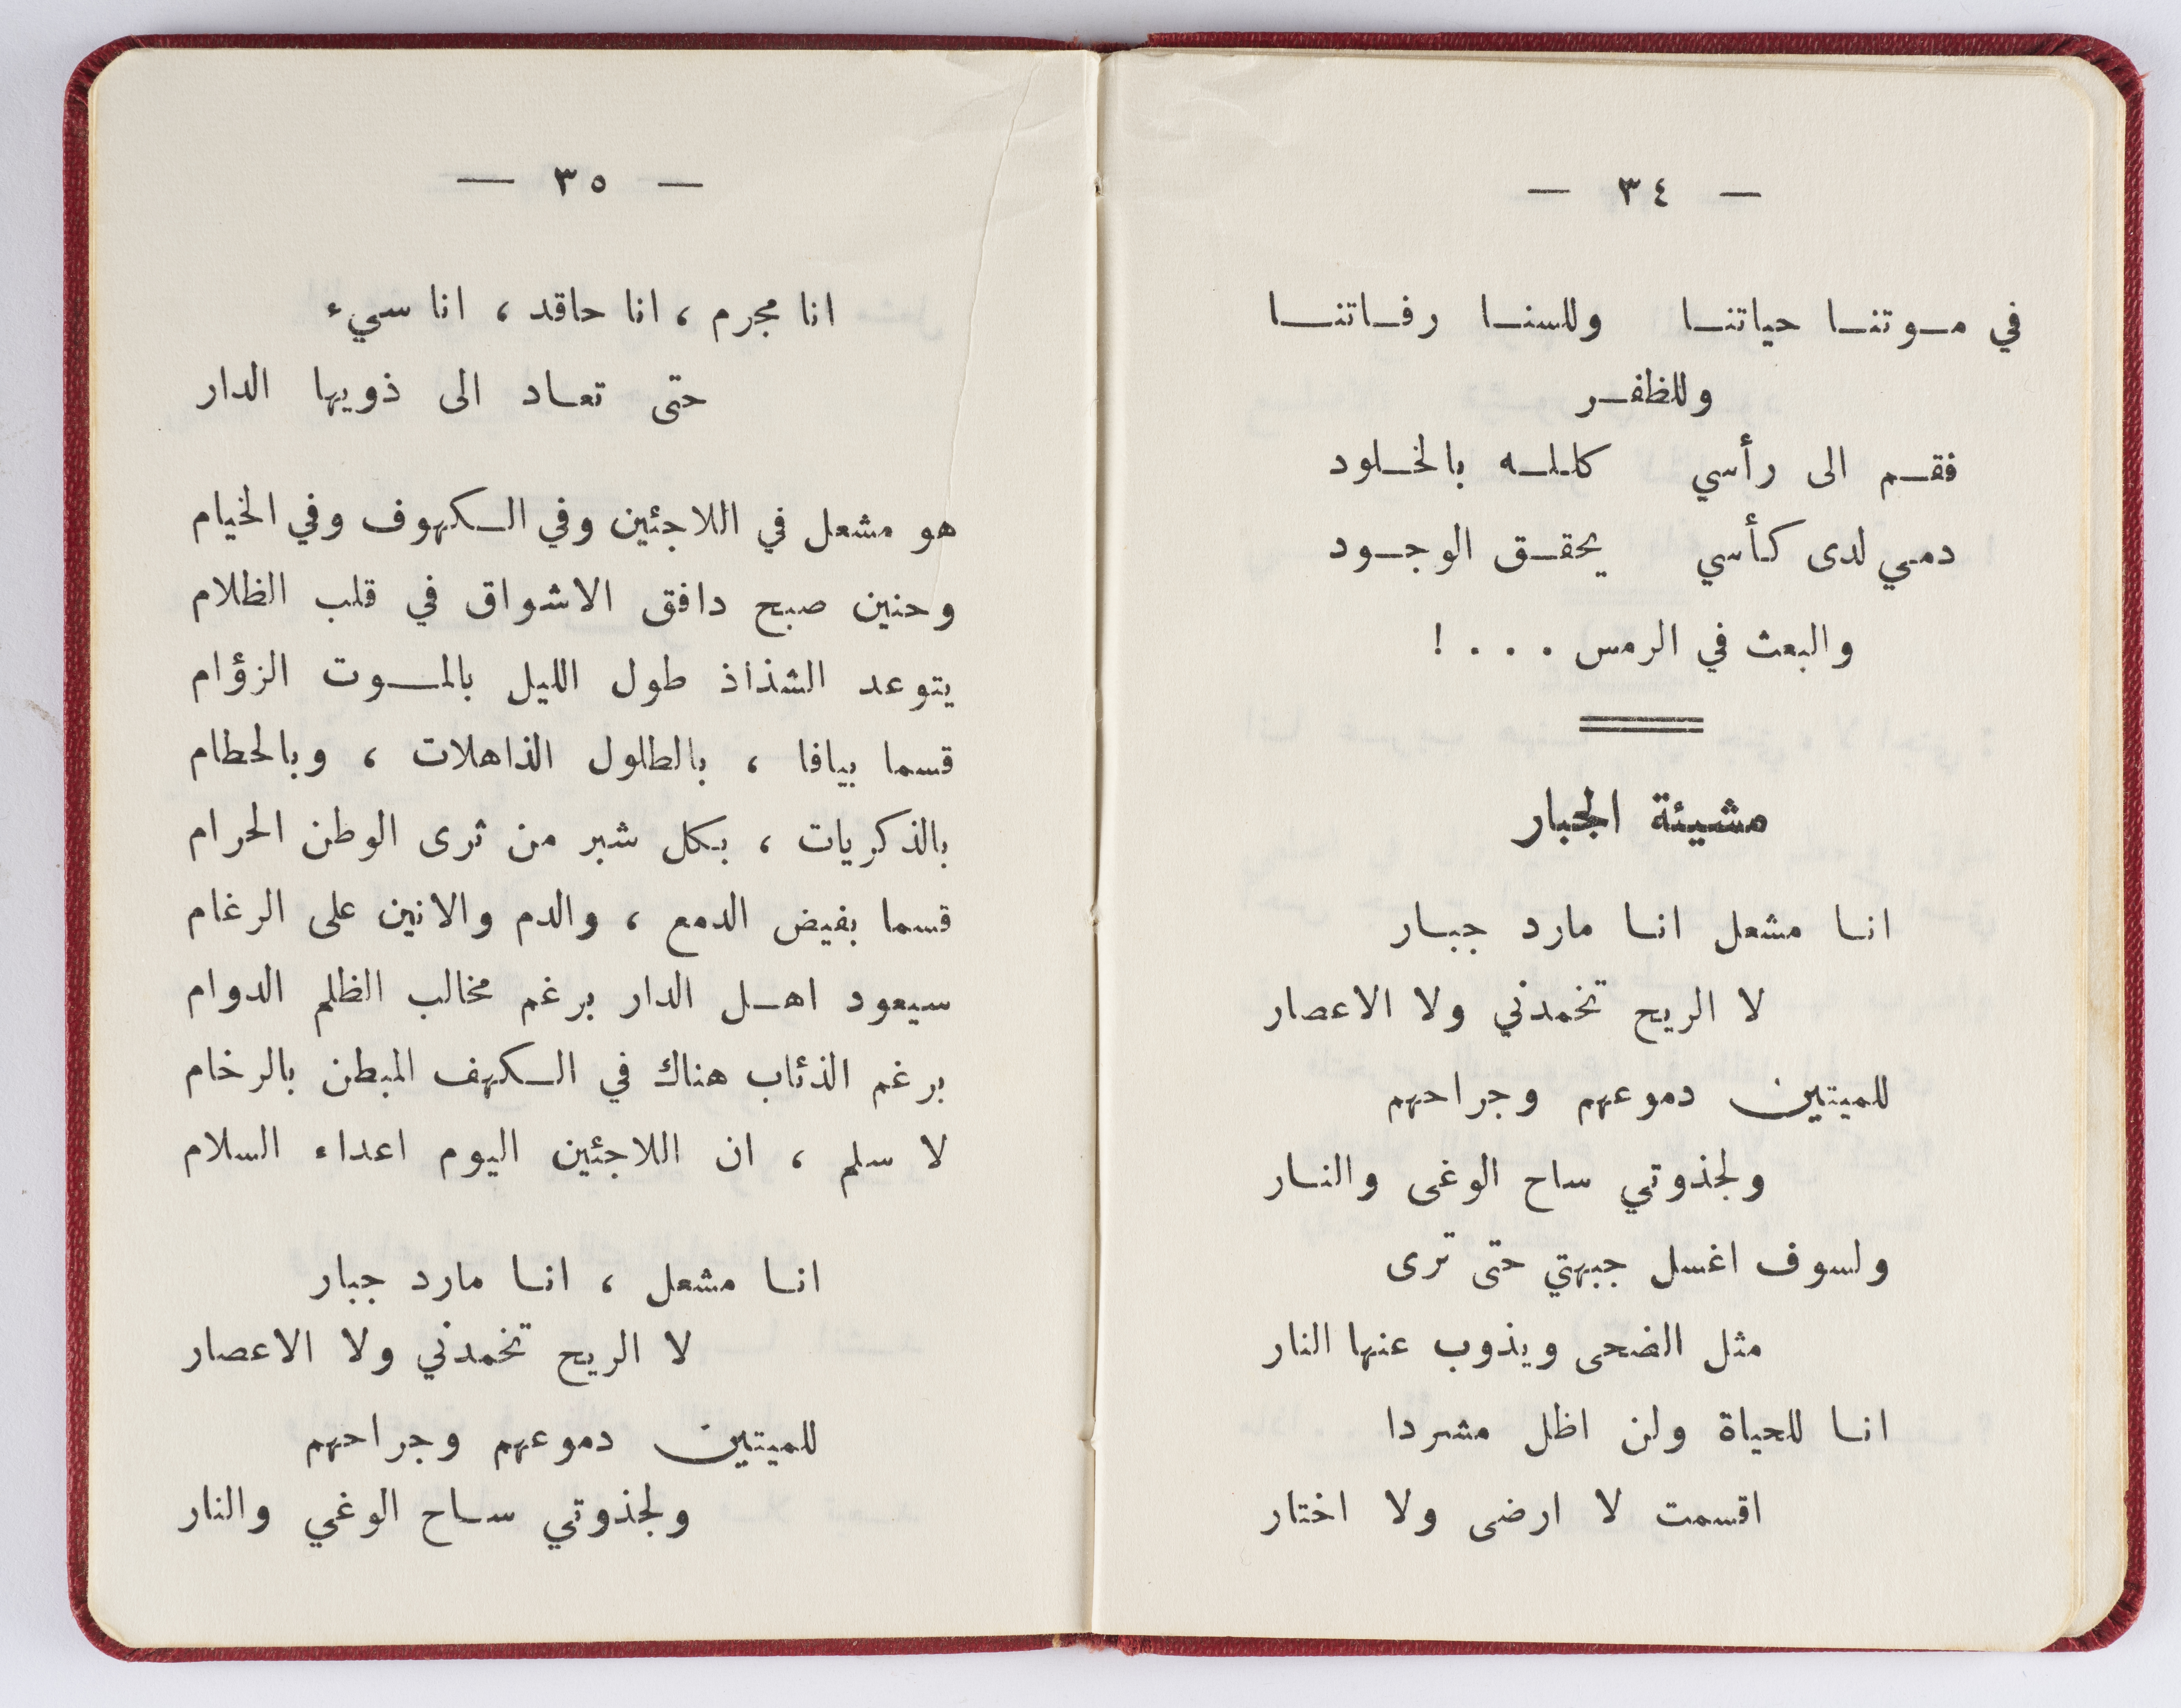 — ٣٤ —
في مـوتنـا حياتنـا وللسنـا رفـاتنـا
وللظفـر
فقـم الى رأسي كللـه بالخـلود
دمي لدى كأسي يحقـق الوجـود
والبعث في الرمس . . . !
مشيئة الجبار
انـا مشعل انـا مارد جبـار
لا الريح تخمدني ولا الاعصار
للميتين دموعهم وجراحهم
ولجذوتي ساح الوغى والنـار
ولسوف اغسل جبهتي حتى ترى
مثل الضحى ويذوب عنها النار
انـا للحياة ولن اظل مشردا
اقسمت لا ارضى ولا اختار
— ٣٥ —
انا مجرم ، انا حاقد ، انا سيء
حتى تعـاد الى ذويها الدار
هو مشعل في اللاجئين وفي الـكهوف وفي الخيام
وحنين صبح دافق الاشواق في قلب الظلام
يتوعد الشذاذ طول الليل بالمـوت الزؤام
قسما بيافا ، بالطلول الذاهلات ، وبالحطام
بالذكريات ، بكل شبر من ثرى الوطن الحرام
قسما بفيض الدمع ، والدم والانين على الرغام
سيعود اهـل الدار برغم مخالب الظلم الدوام
برغم الذئاب هناك في الـكهف المبطن بالرخام
لا سلم ، ان اللاجئين اليوم اعداء السلام
انـا مشعل ، انـا مارد جبار
لا الريح تخمدني ولا الاعصار
للميتين دموعهم وجراحهم
ولجذوتي سـاح الوغي والنار